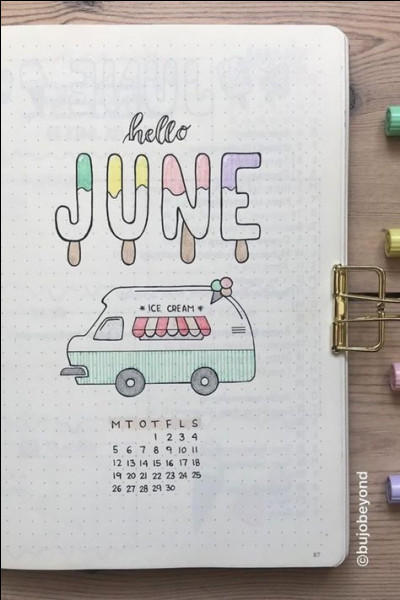 hello
JUNE
* ICE CREAM *
M T O T F L S
1 2 3 4
5 6 7 8 9 10 11
12 13 14 15 16 17 18
19 20 21 22 23 24 25
26 27 28 29 30
87
@bujobeyond